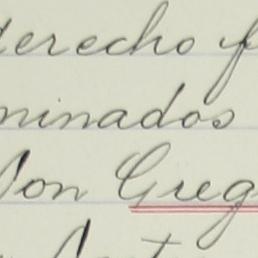 derecho f
minados
Don Greg